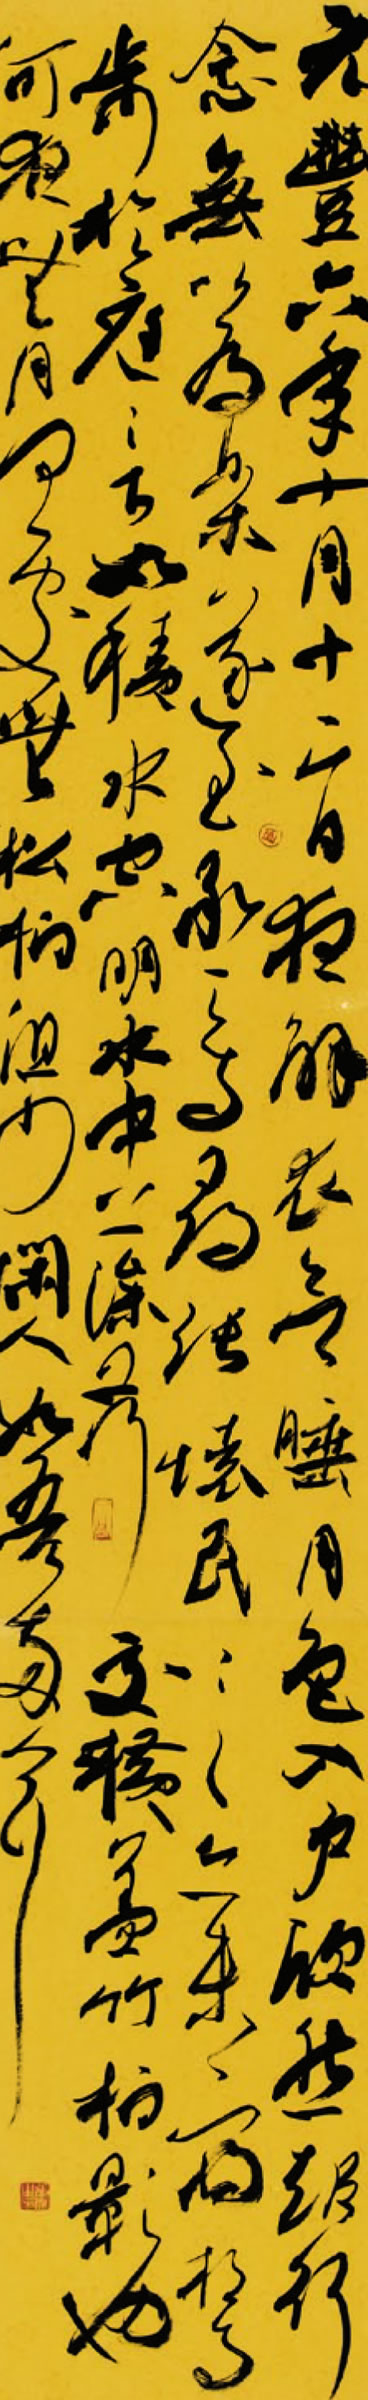 元豐六年十月十二日夜解衣欲睡月色入戶欣然起行
念無以為樂遂至承天寺尋張懷民亦未寢相與
步於庭下如積水空明水中藻荇交橫蓋竹柏影也
何夜無月何處無松柏但少閑人如吾兩人耳